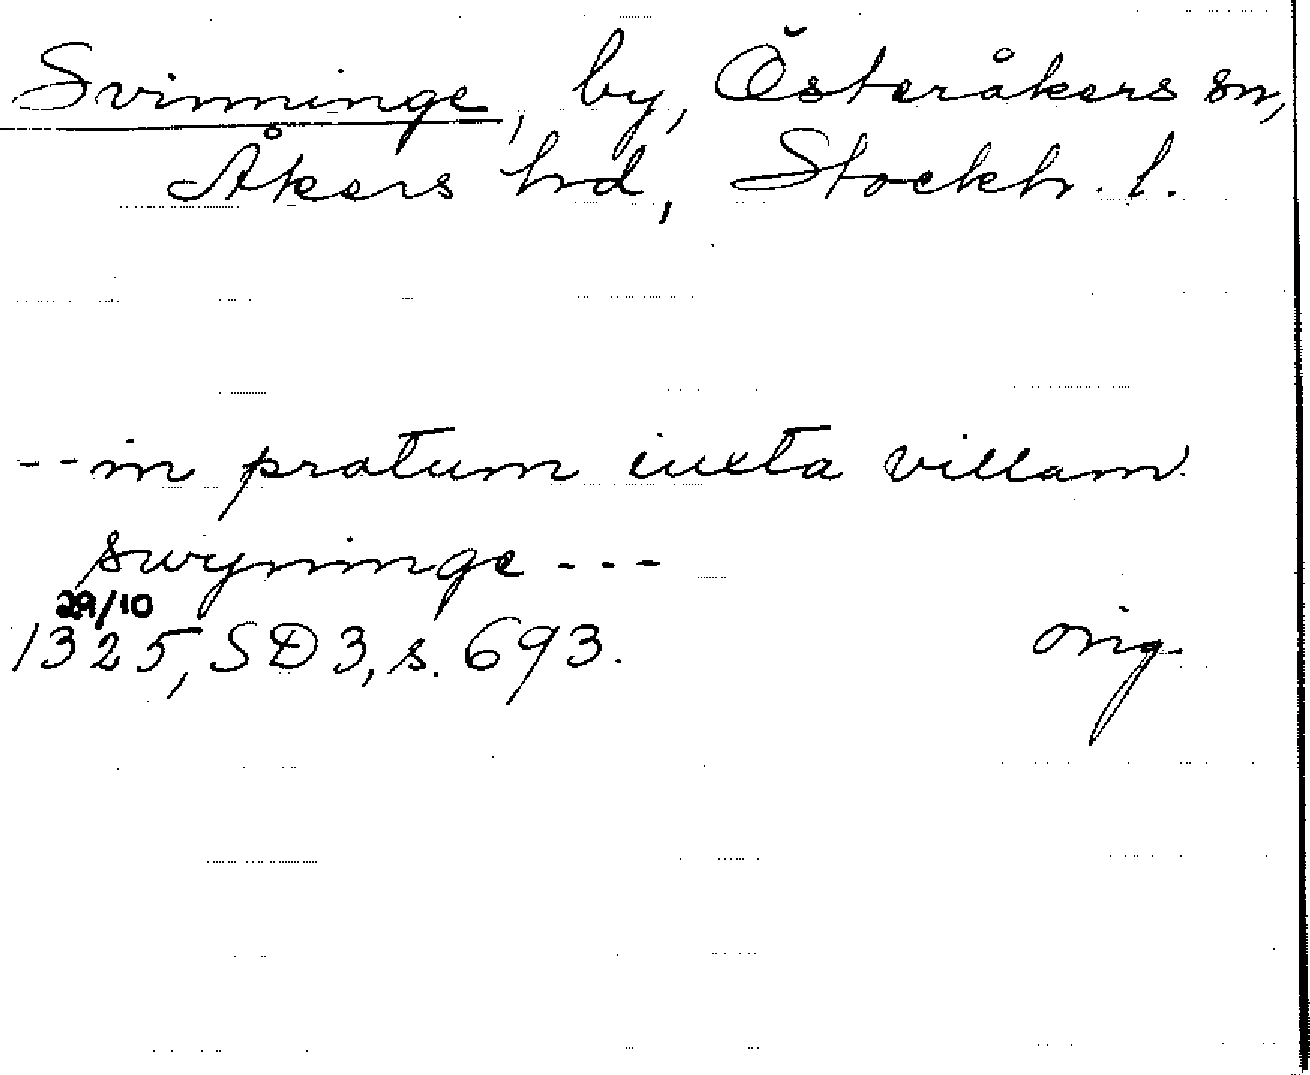 Svinninge, by, Österåkers sn,
Åkers hrd, Stockh. l.
--in pratum iuxta villam
swyninge ---
29/10
1325, SD 3, s. 693. orig.